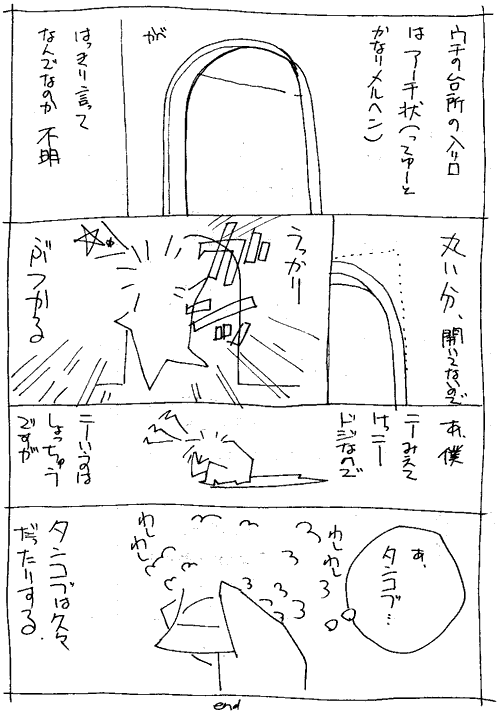 ウチの台所の入り口
は アーチ状(ってゆーと
かなりメルヘン)
が
はっきり言って
なんでなのか 不明
丸い分、開いてないので
うっかり
ガン
ぶつかる
あ、僕
こーみえて
けっこー
ドジなので
こーいうのは
しょっちゅう
ですが
あ、
タンコブ…
わしわし
わしわし
タンコブは久々
だったりする.
end